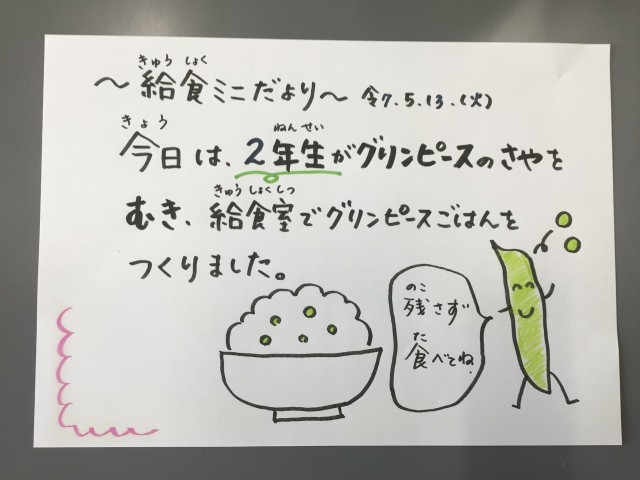 きゅう しょく
～給食ミニだより～ 令7.5.13.(火)
きょう ねん せい
今日は、2年生がグリンピースのさやを
きゅう しょく しつ
むき、給食室でグリンピースごはんを
つくりました。
のこ
残さず
た
食べてね。